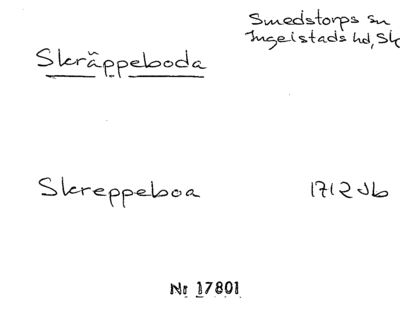 Smedstorps sn
Ingelstads hd, Sk
Skräppeboda
Skreppeboa 1712 Jb
Nr 17801